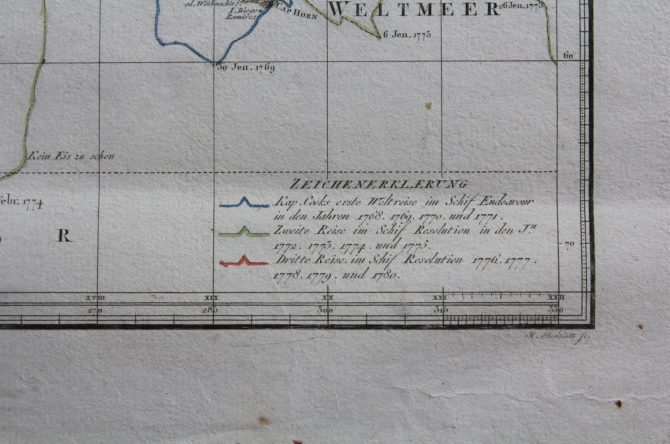 WELTMEER
26 Jen. 1775
CAP HORN
I. Diego
Ramirez
6 Jen. 1775
60
30 Jen. 1769
Kein Eis zu sehen
Febr. 1774
R
ZEICHENERKLÆRUNG
Kap. Cooks erste Weltreise im Schif Endeavour
in den Jahren 1768. 1769. 1770. und 1771.
Zweite Reise im Schif Resolution in den Jn
1772. 1773. 1774. und 1775.
Dritte Reise im Schif Resolution 1776. 1777.
1778. 1779. und 1780.
70
XVIII XIX XX XXI XXII
270 285 300 315 330
sc.